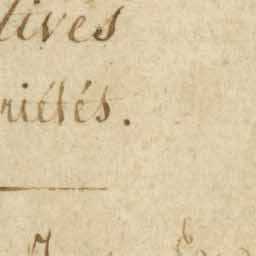 tives
riétés.